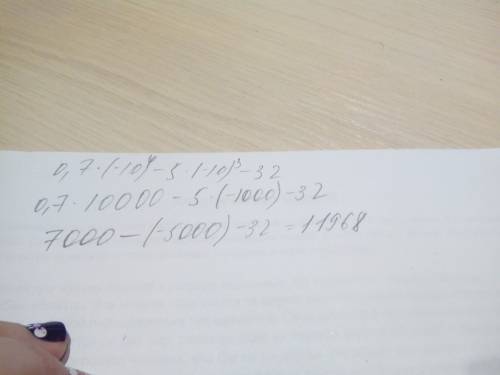 0,7·(-10)⁴-5·(-10)³-32
0,7·10000-5·(-1000)-32
7000-(-5000)-32=11968